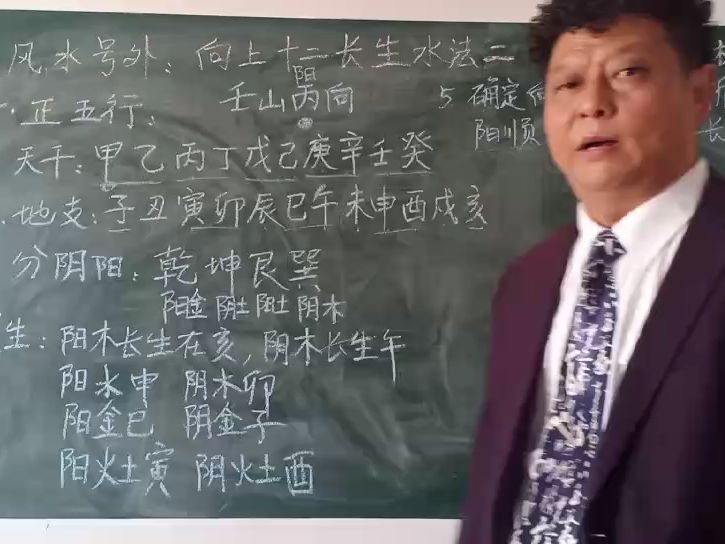 风水号外：向上十二长生水法二
阳
壬山丙向
一.正五行：
天干：甲乙丙丁戊己庚辛壬癸
.地支：子丑寅卯辰巳午未申酉戌亥
分阴阳：乾坤艮巽
阳金 阴土 阳土 阴木
生：阳木长生在亥，阴木长生午
阳水申 阴水卯
阳金巳 阴金子
阳火土寅 阴火土酉
5 确定向
阳顺
长